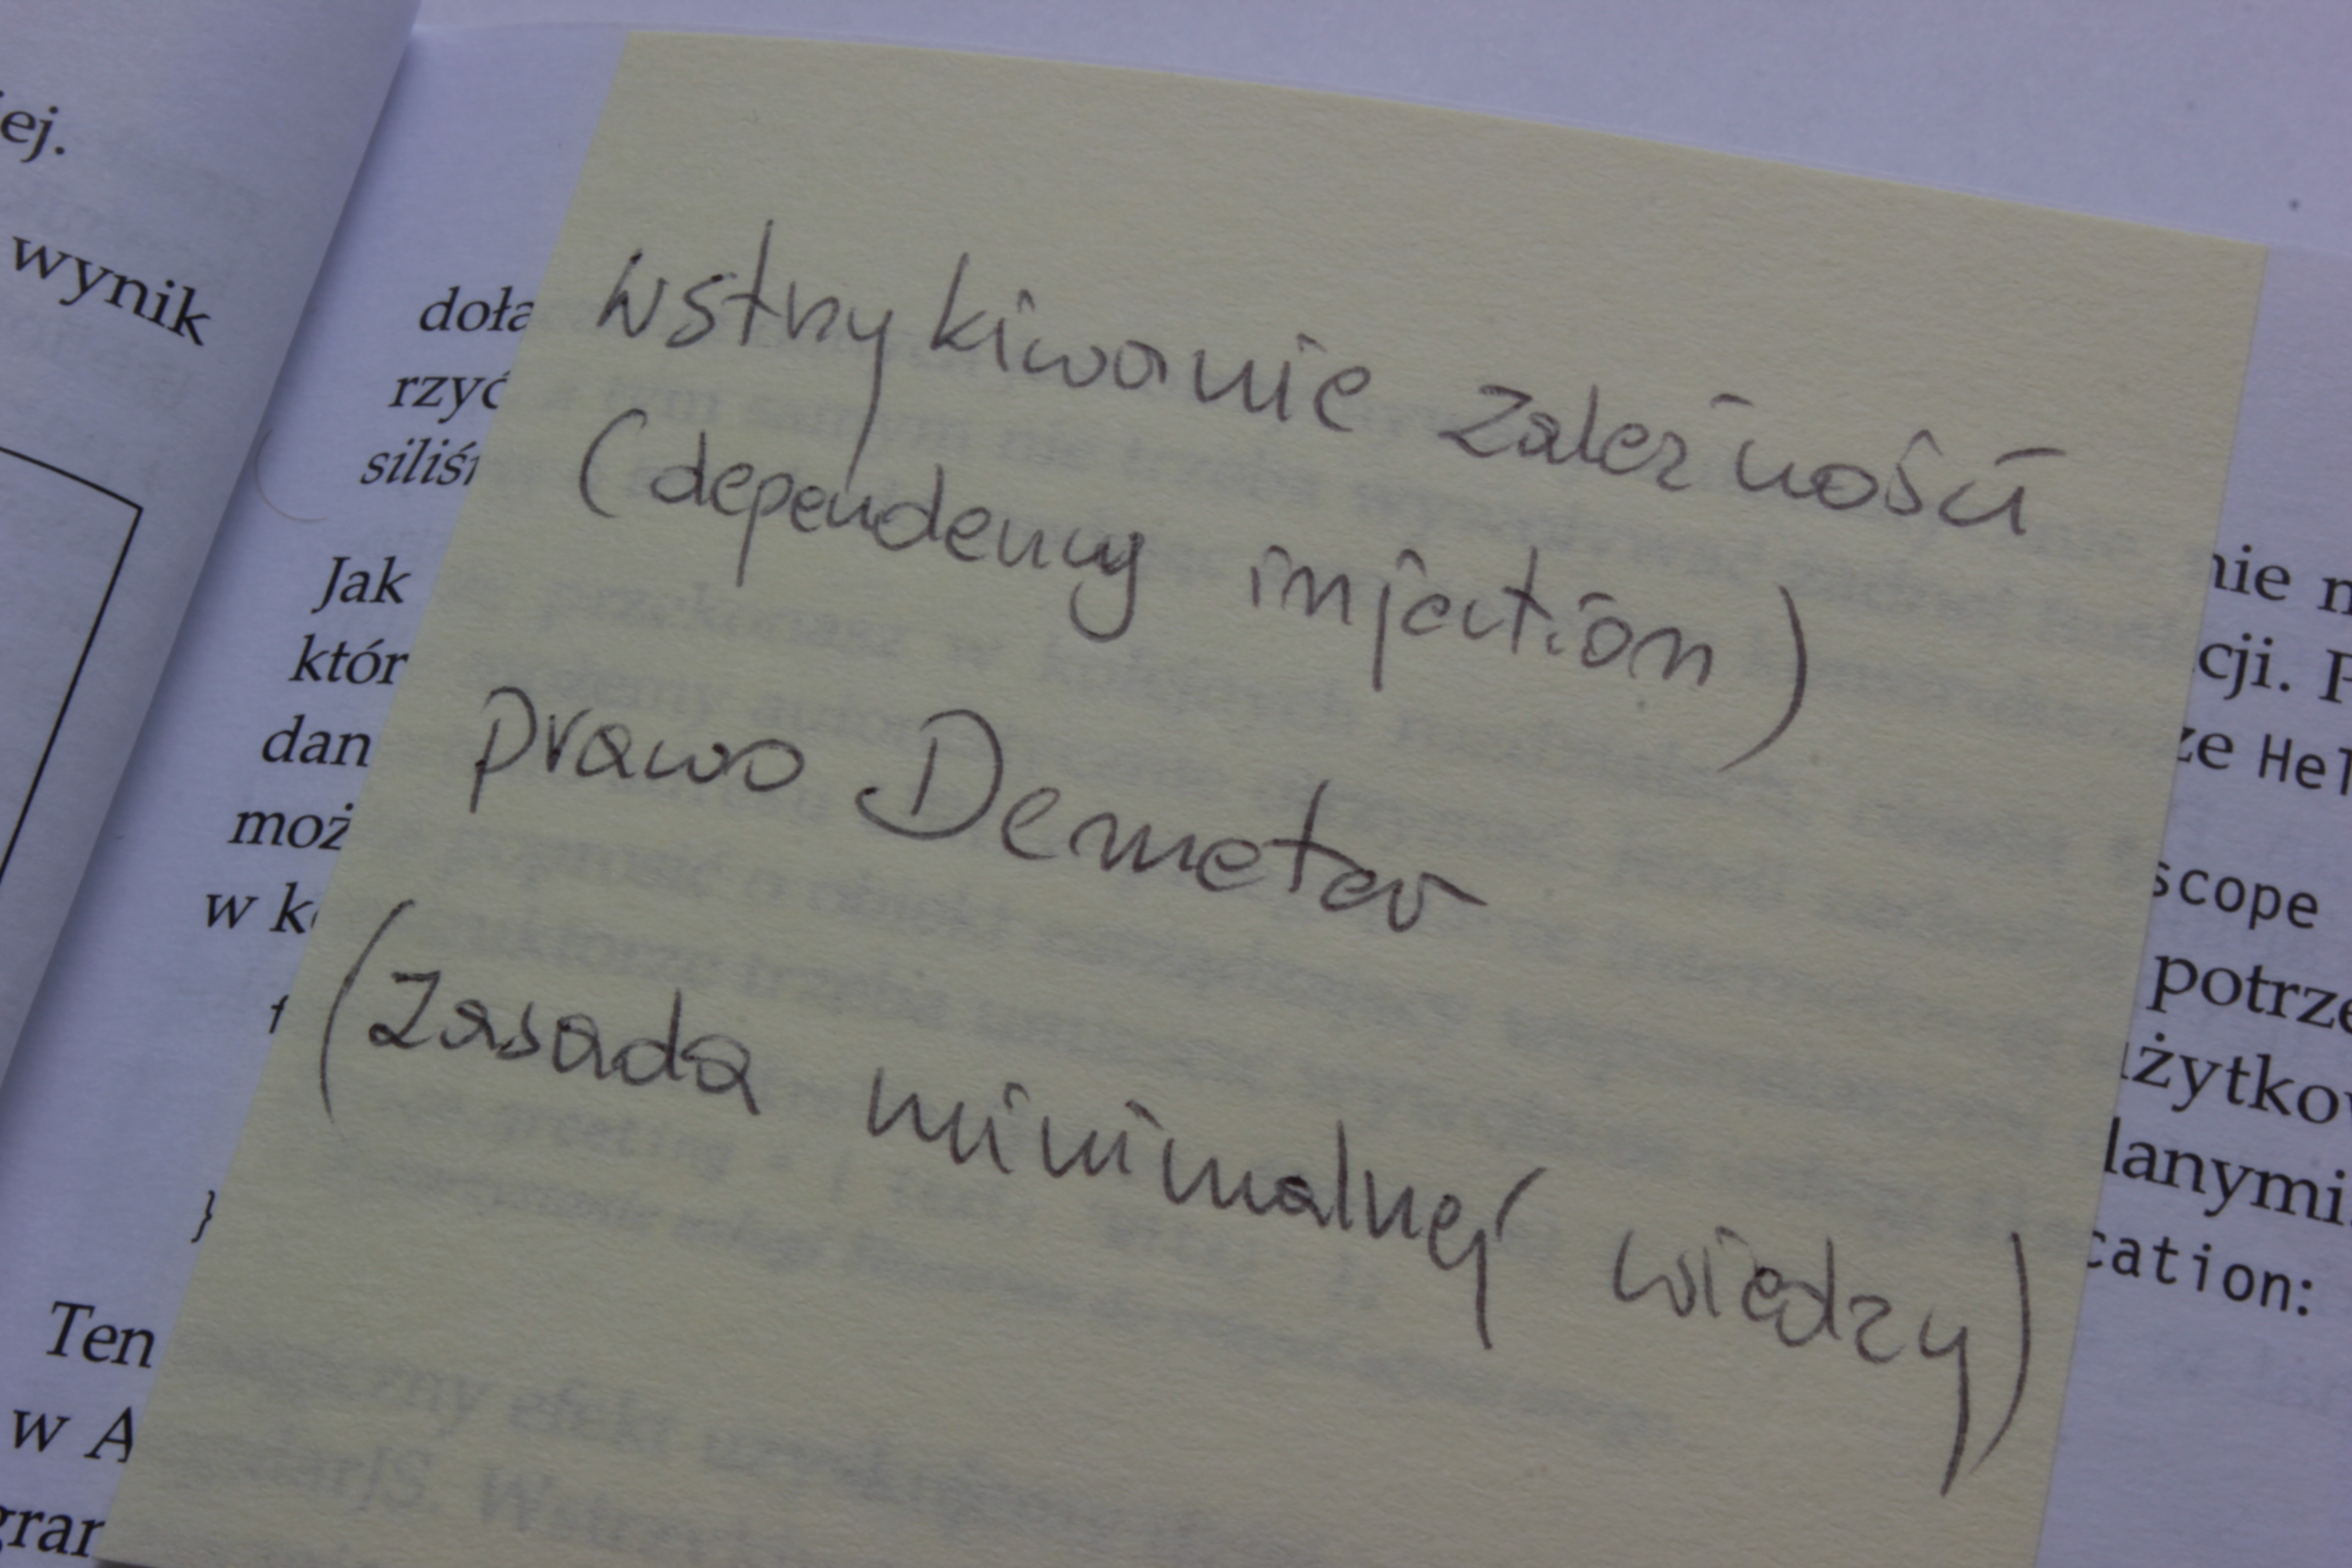 ej.
wynik
doła
rzyć
siliś
Jak
któr
dan
moż
w k
f
}
Ten
w A
gran
wstrzykiwanie zależności
(dependency injection)
prawo Demeter
(zasada minimalnej wiedzy)
nie
cji. P
ze Hel
scope
potrze
użytkow
danymi.
cation: